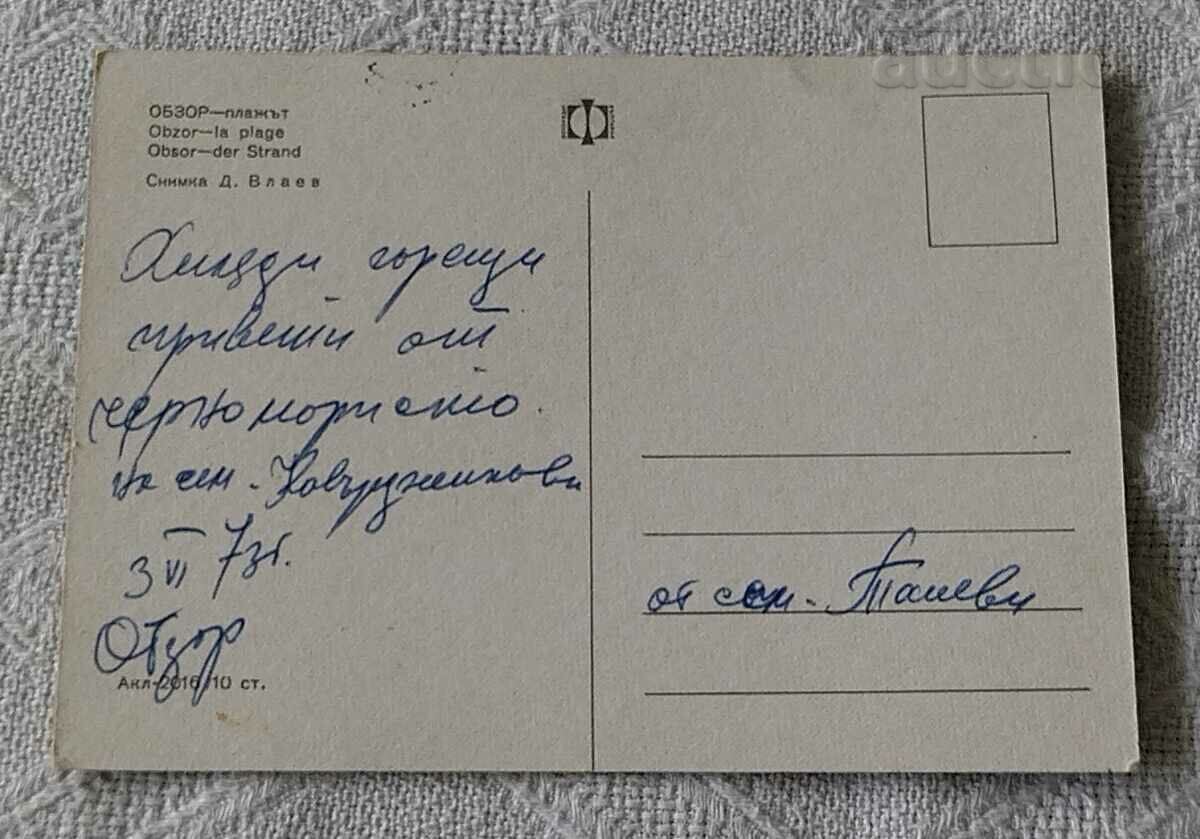 auctio
ОБЗОР—плажът
Obzor—la plage
Obsor—der Strand
Снимка Д. Влаев
Хиляди горещи
привети от
Черноморието
на сем.
3 VI 73г.
Обзор
Акл-2016/10 ст.
от сем. Талеви